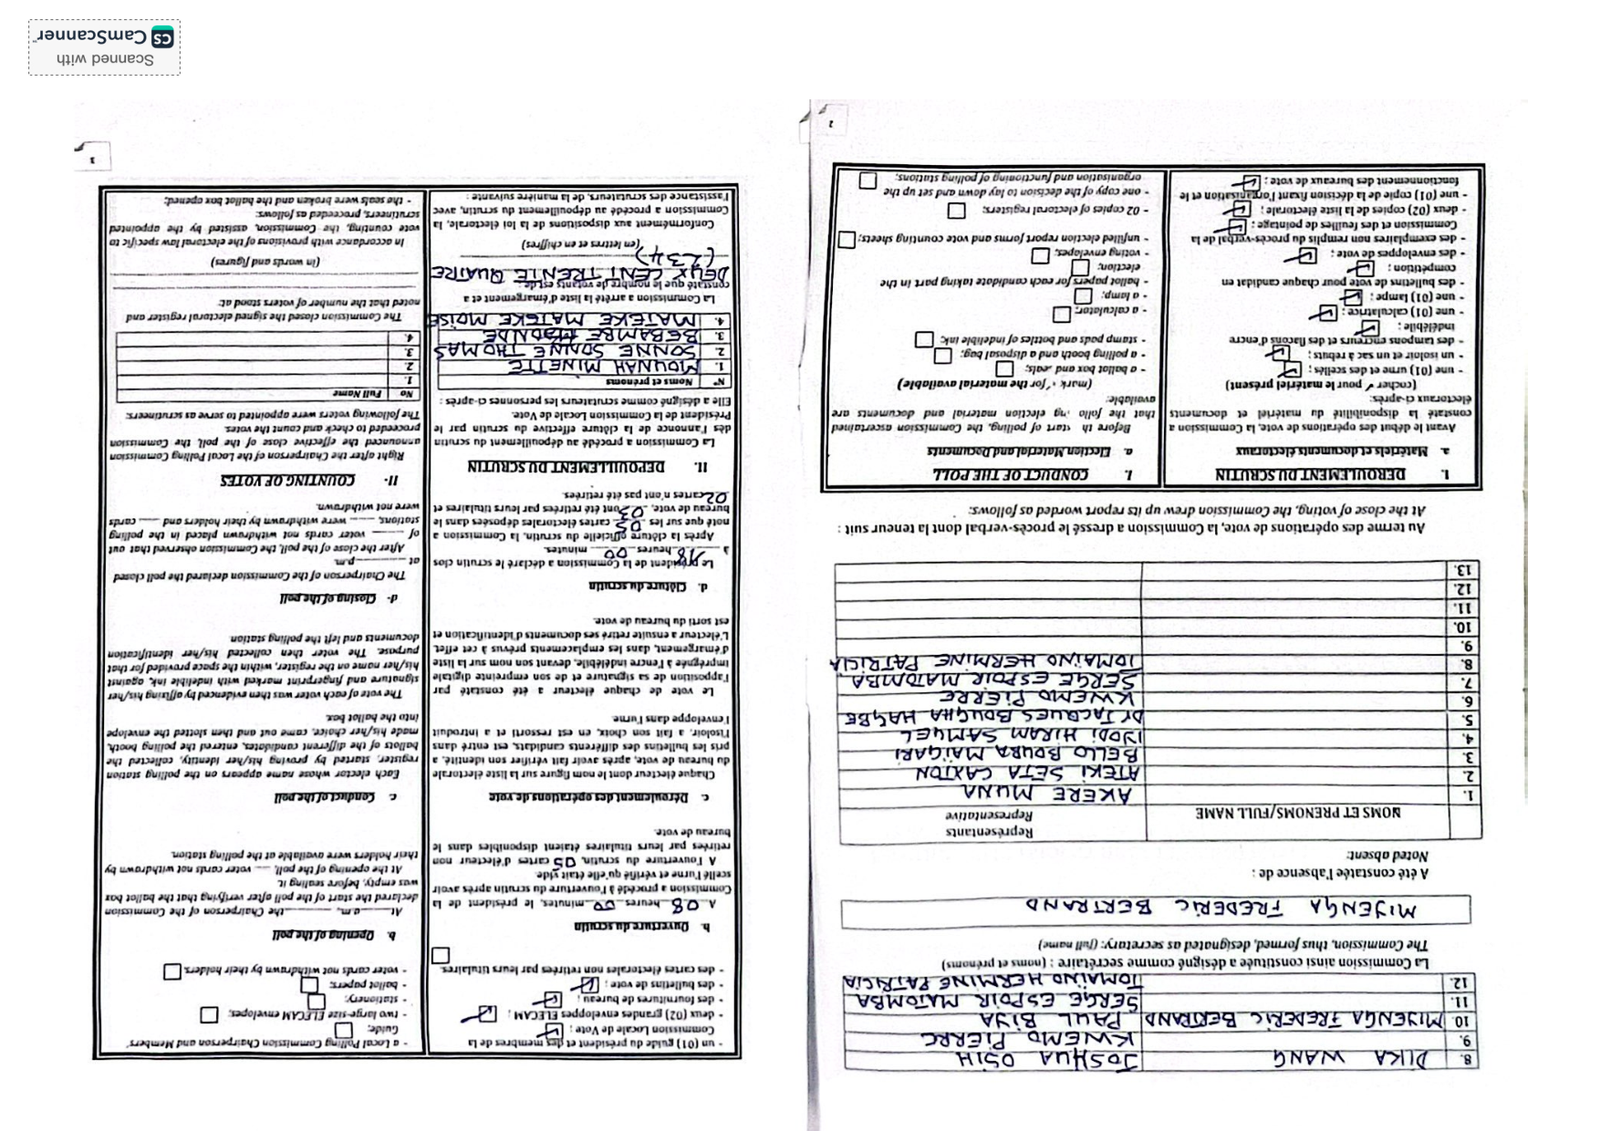 8. DIKA WANG JOSHUA OSIH
9. KWEMO PIERRE
10. MIJENGA FREDERIC BERTRAND PAUL BIYA
11. SERGE ESPOIR MATOMBA
12. TOMAÏNO HERMINE PATRICIA
La Commission ainsi constituée a désigné comme secrétaire : (noms et prénoms)
The Commission, thus formed, designated as secretary: (full name)
MIJENGA FREDERIC BERTRAND
A été constatée l'absence de :
Noted absent:
NOMS ET PRENOMS/FULL NAME
Représentants
Representative
1. AKERE MUNA
2. ATEKI SETA CAXTON
3. BELLO BOUBA MAÏGARI
4. IYODI HIRAM SAMUEL
5. Dr JACQUES BOUGHA HAGBE
6. KWEMO PIERRE
7. SERGE ESPOIR MATOMBA
8. TOMAÏNO HERMINE PATRICIA
9.
10.
11.
12.
13.
Au terme des opérations de vote, la Commission a dressé le procès-verbal dont la teneur suit :
At the close of voting, the Commission drew up its report worded as follows:
I. DEROULEMENT DU SCRUTIN
a. Matériels et documents électoraux
Avant le début des opérations de vote, la Commission a
constaté la disponibilité du matériel et documents
électoraux ci-après:
(cocher ✓ pour le matériel présent)
- une (01) urne et des scellés ;
- un isoloir et un sac à rebuts ;
- des tampons encreurs et des flacons d'encre
indélébile ;
- une (01) calculatrice ;
- une (01) lampe ;
- des bulletins de vote pour chaque candidat en
compétition ;
- des enveloppes de vote ;
- des exemplaires non remplis du procès-verbal de la
Commission et des feuilles de pointage ;
- deux (02) copies de la liste électorale ;
- une (01) copie de la décision fixant l'organisation et le
fonctionnement des bureaux de vote ;
I. CONDUCT OF THE POLL
a. Election Material and Documents
Before th start of polling, the Commission ascertained
that the follo ing election material and documents are
available:
(mark ✓ for the material available)
- a ballot box and seals;
- a polling booth and a disposal bag;
- stamp pads and bottles of indelible ink;
- a calculator;
- a lamp;
- ballot papers for each candidate taking part in the
election;
- voting envelopes;
- unfilled election report forms and vote counting sheets;
- 02 copies of electoral registers;
- one copy of the decision to lay down and set up the
organisation and functioning of polling stations;
2
- un (01) guide du président et des membres de la
Commission Locale de Vote ;
- deux (02) grandes enveloppes ELECAM ;
- des fournitures de bureau ;
- des bulletins de vote ;
- des cartes électorales non retirées par leurs titulaires.
b. Ouverture du scrutin
A 08 heures 00 minutes, le président de la
Commission a procédé à l'ouverture du scrutin après avoir
scellé l'urne et vérifié qu'elle était vide.
A l'ouverture du scrutin, 05 cartes d'électeur non
retirées par leurs titulaires étaient disponibles dans le
bureau de vote.
c. Déroulement des opérations de vote
Chaque électeur dont le nom figure sur la liste électorale
du bureau de vote, après avoir fait vérifier son identité, a
pris les bulletins des différents candidats, est entré dans
l'isoloir, a fait son choix, en est ressorti et a introduit
l'enveloppe dans l'urne.
Le vote de chaque électeur a été constaté par
l'apposition de sa signature et de son empreinte digitale
imprégnée à l'encre indélébile, devant son nom sur la liste
d'émargement, dans les emplacements prévus à cet effet.
L'électeur a ensuite retiré ses documents d'identification et
est sorti du bureau de vote.
d. Clôture du scrutin
Le président de la Commission a déclaré le scrutin clos
à 18 heures 00 minutes.
Après la clôture officielle du scrutin, la Commission a
noté que sur les 05 cartes électorales déposées dans le
bureau de vote, 03 ont été retirées par leurs titulaires et
02 cartes n'ont pas été retirées.
II. DEPOUILLEMENT DU SCRUTIN
La Commission a procédé au dépouillement du scrutin
dès l'annonce de la clôture effective du scrutin par le
Président de la Commission Locale de Vote.
Elle a désigné comme scrutateurs les personnes ci-après :
N° Noms et prénoms
1. MOUNAH MINETTE
2. SONNE SONNE THOMAS
3. BEBAMBE
4. MATEKE MATEKE MOISE
La Commission a arrêté la liste d'émargement et a
constaté que le nombre de votants est de :
DEUX CENT TRENTE QUATRE
(234)
(en lettres et en chiffres)
Conformément aux dispositions de la loi électorale, la
Commission a procédé au dépouillement du scrutin, avec
l'assistance des scrutateurs, de la manière suivante :
- a Local Polling Commission Chairperson and Members'
Guide;
- two large-size ELECAM envelopes;
- stationery;
- ballot papers;
- voter cards not withdrawn by their holders.
b. Opening of the poll
At ____a.m, ____the Chairperson of the Commission
declared the start of the poll after verifying that the ballot box
was empty, before sealing it.
At the opening of the poll, __ voter cards not withdrawn by
their holders were available at the polling station.
c. Conduct of the poll
Each elector whose name appears on the polling station
register, started by proving his/her identity, collected the
ballots of the different candidates, entered the polling booth,
made his/her choice, came out and then slotted the envelope
into the ballot box.
The vote of each voter was then evidenced by affixing his/her
signature and fingerprint marked with indelible ink, against
his/her name on the register, within the space provided for that
purpose. The voter then collected his/her identification
documents and left the polling station
d- Closing of the poll
The Chairperson of the Commission declared the poll closed
at ________p.m.
After the close of the poll, the Commission observed that out
of ____ voter cards not withdrawn placed in the polling
stations, ____ were withdrawn by their holders and ____ cards
were not withdrawn.
II- COUNTING OF VOTES
Right after the Chairperson of the Local Polling Commission
announced the effective close of the poll, the Commission
proceeded to check and count the votes.
The following voters were appointed to serve as scrutineers:
No Full Name
1.
2.
3.
4.
The Commission closed the signed electoral register and
noted that the number of voters stood at:
(in words and figures)
In accordance with provisions of the electoral law specific to
vote counting, the Commission, assisted by the appointed
scrutineers, proceeded as follows:
- the seals were broken and the ballot box opened;
3
Scanned with
CS CamScanner